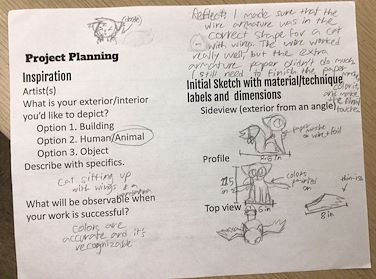 (doodle)
Reflect: I made sure that the
wire armature was in the
correct shape for a cat
with wings. The wire worked
really well, but the extra
armature paper didn't do much.
I still need to finish the paper
color it,
and make
the final
touches
Project Planning
Inspiration
Artist(s)
What is your exterior/interior
you'd like to depict?
Option 1. Building
Option 2. Human/Animal
Option 3. Object
Describe with specifics.
cat sitting up
with wings
What will be observable when
your work is successful?
colors are
accurate and it's
recognizable
Initial Sketch with material/technique
labels and dimensions
Sideview (exterior from an angle)
Profile
colors
painted on
in
Top view
6 in
8 in